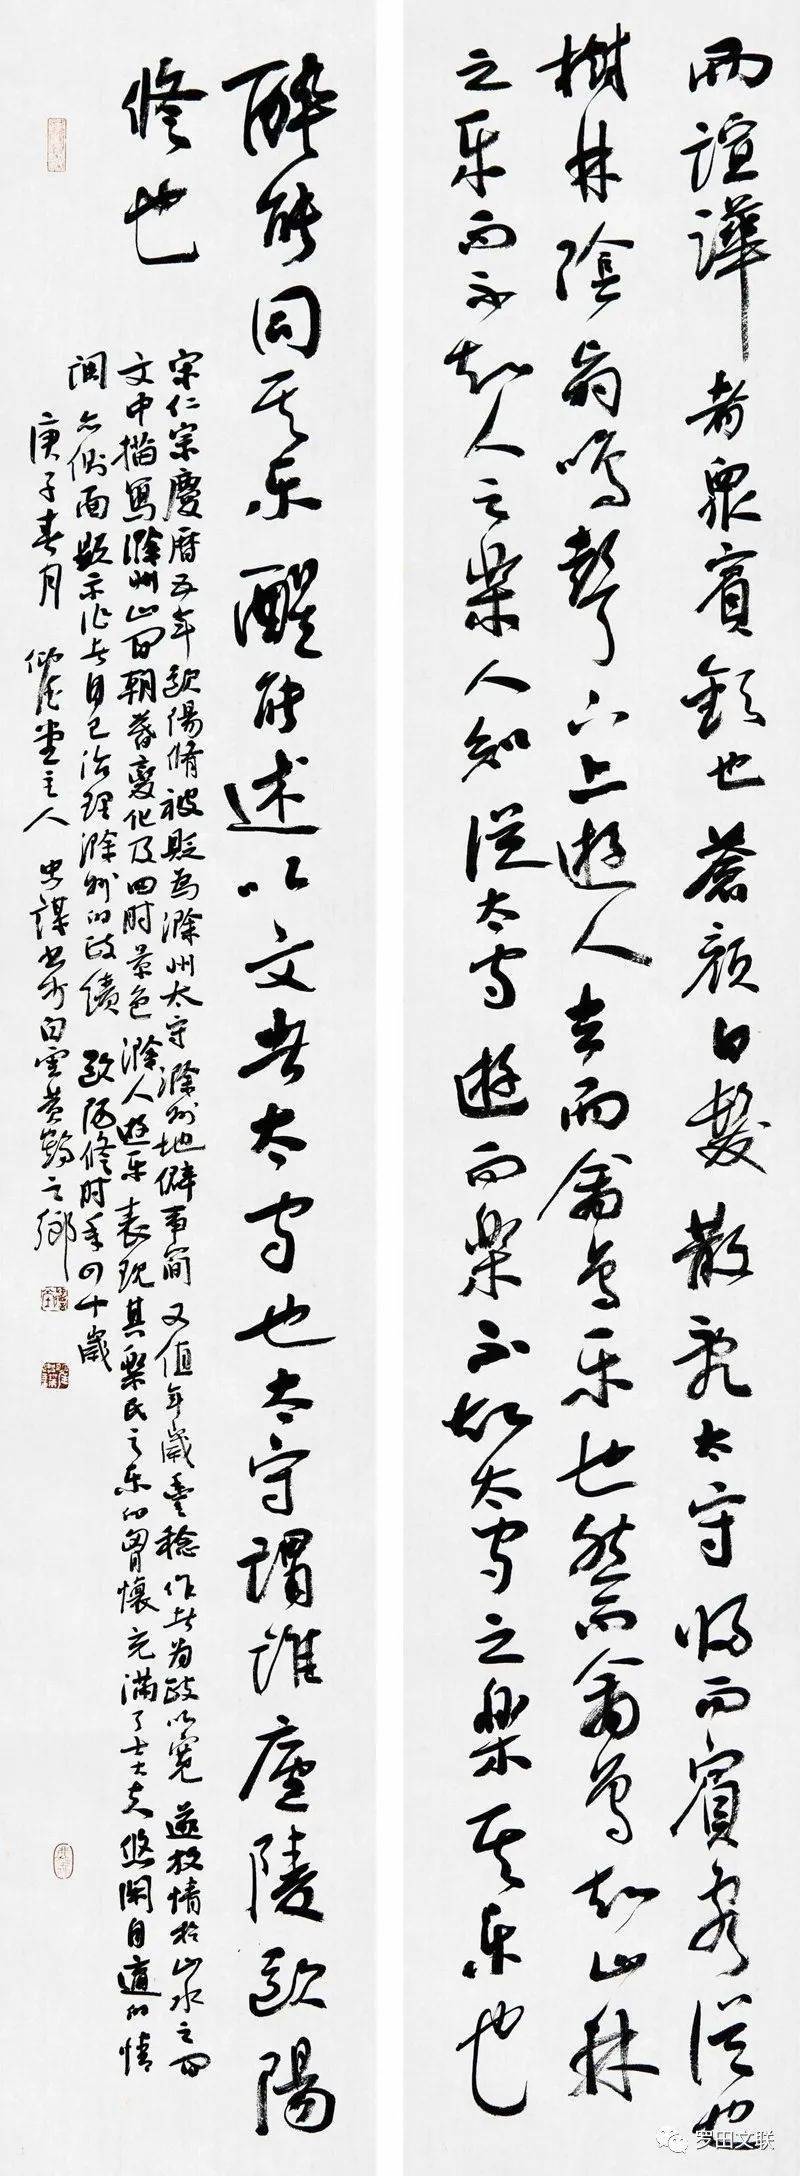 而諠譁者衆賓歡也蒼顔白髮散亂太守歸而賓客從也
樹林陰翳鳴聲下上遊人去而禽鳥樂也然而禽鳥知山林
之樂而不知人之樂人知從太守遊而樂不知太守之樂其樂也
醉能同其樂醒能述以文者太守也太守謂誰廬陵歐陽
修也
宋仁宗慶曆五年歐陽脩被貶爲滁州太守滁州地僻事簡又值年歲豐稔作者为政以寬遂放情於山水之間
文中描寫滁州山間朝暮變化及四时景色滁人遊樂表现其樂民之樂的胷懷充滿了士大夫悠閑自適的情
調亦側面顯示作者自己治理滁州的政績歐陽修时年四十歲
庚子春月 堂主人 忠謀書於白雲黄鶴之鄉
罗田文联